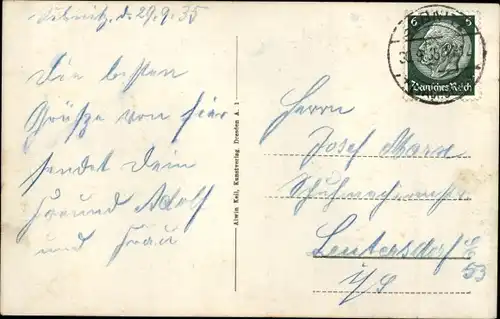 Sebnitz, d. 29.9.35
Die besten
Grüße von hier
sendet Dein
Freund Adolf
und Frau
Alwin Keil, Kunstverlag, Dresden A. 1
6 6
Deutsches Reich
Herrn
Josef Marx
Schuhmachermstr.
Leutersdorf
53